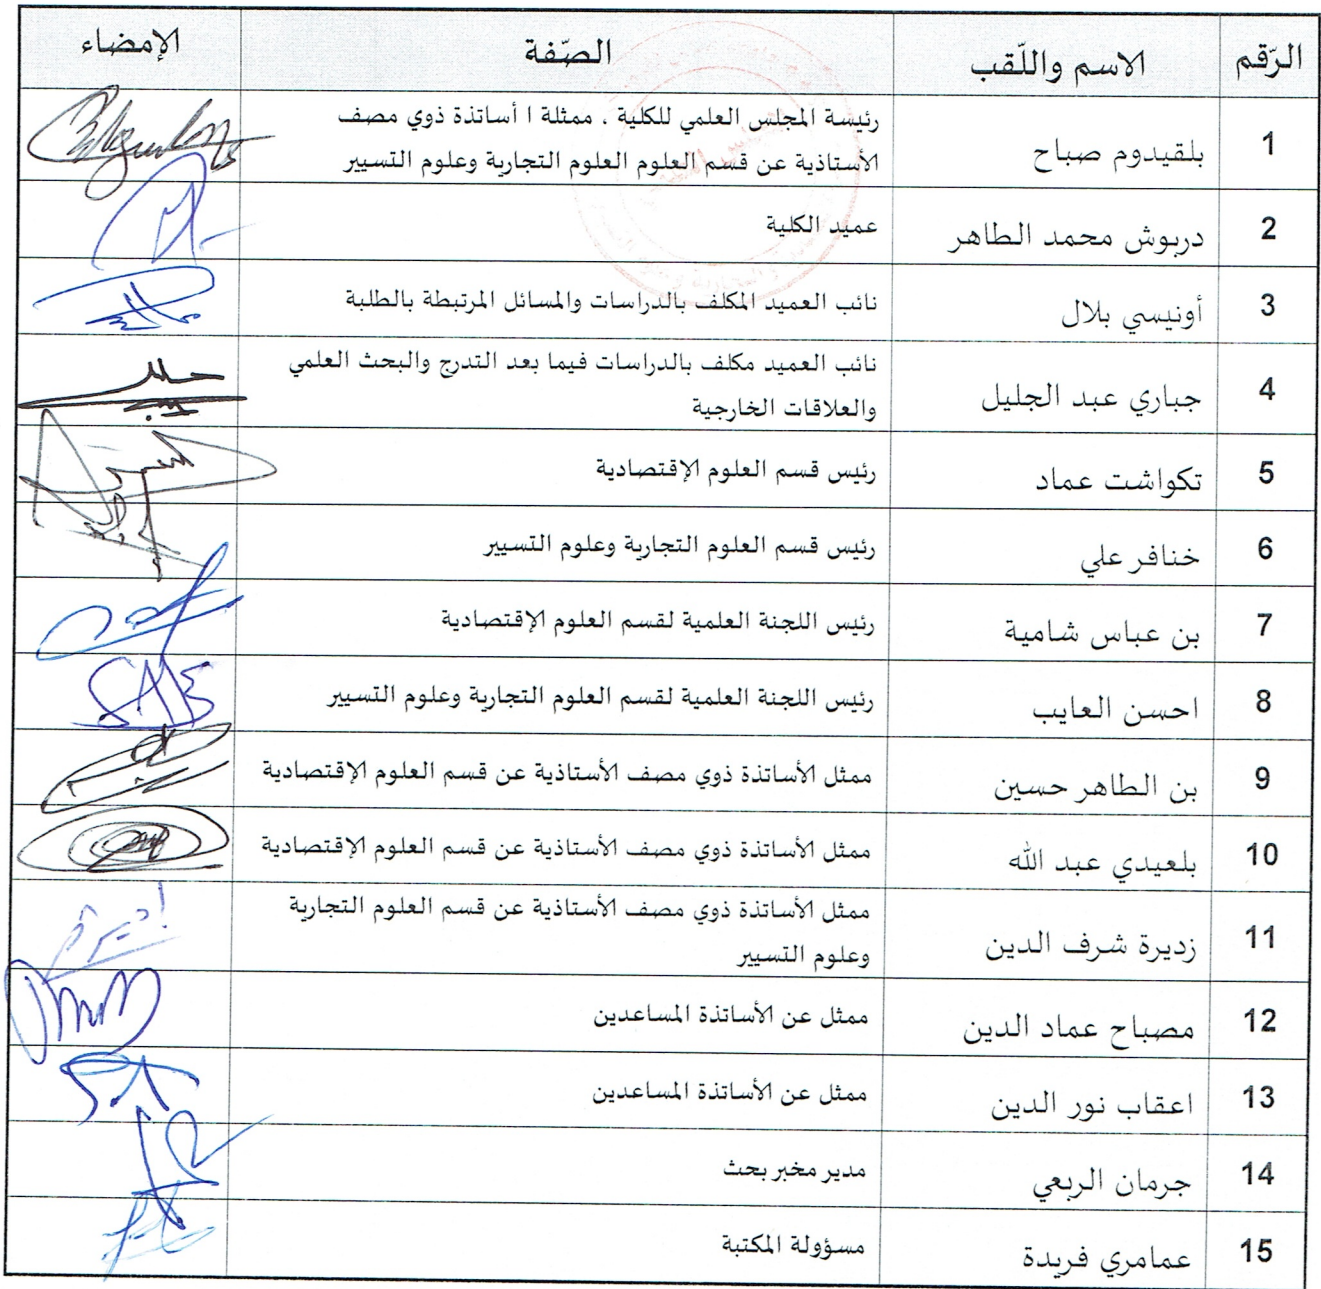 الرّقم الاسم واللّقب الصّفة الإمضاء
1 بلقيدوم صباح رئيسة المجلس العلمي للكلية ، ممثلة ا أساتذة ذوي مصف
الأستاذية عن قسم العلوم العلوم التجارية وعلوم التسيير
2 دربوش محمد الطاهر عميد الكلية
3 أونيسي بلال نائب العميد المكلف بالدراسات والمسائل المرتبطة بالطلبة
4 جباري عبد الجليل نائب العميد مكلف بالدراسات فيما بعد التدرج والبحث العلمي
والعلاقات الخارجية
5 تكواشت عماد رئيس قسم العلوم الإقتصادية
6 خنافر علي رئيس قسم العلوم التجارية وعلوم التسيير
7 بن عباس شامية رئيس اللجنة العلمية لقسم العلوم الإقتصادية
8 احسن العايب رئيس اللجنة العلمية لقسم العلوم التجارية وعلوم التسيير
9 بن الطاهر حسين ممثل الأساتذة ذوي مصف الأستاذية عن قسم العلوم الإقتصادية
10 بلعيدي عبد الله ممثل الأساتذة ذوي مصف الأستاذية عن قسم العلوم الإقتصادية
11 زديرة شرف الدين ممثل الأساتذة ذوي مصف الأستاذية عن قسم العلوم التجارية
وعلوم التسيير
12 مصباح عماد الدين ممثل عن الأساتذة المساعدين
13 اعقاب نور الدين ممثل عن الأساتذة المساعدين
14 جرمان الربعي مدير مخبر بحث
15 عمامري فريدة مسؤولة المكتبة